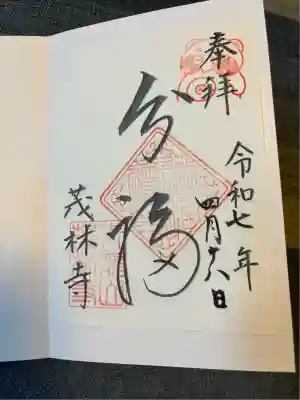 奉拝
令和七年
四月六日
分福
茂林寺